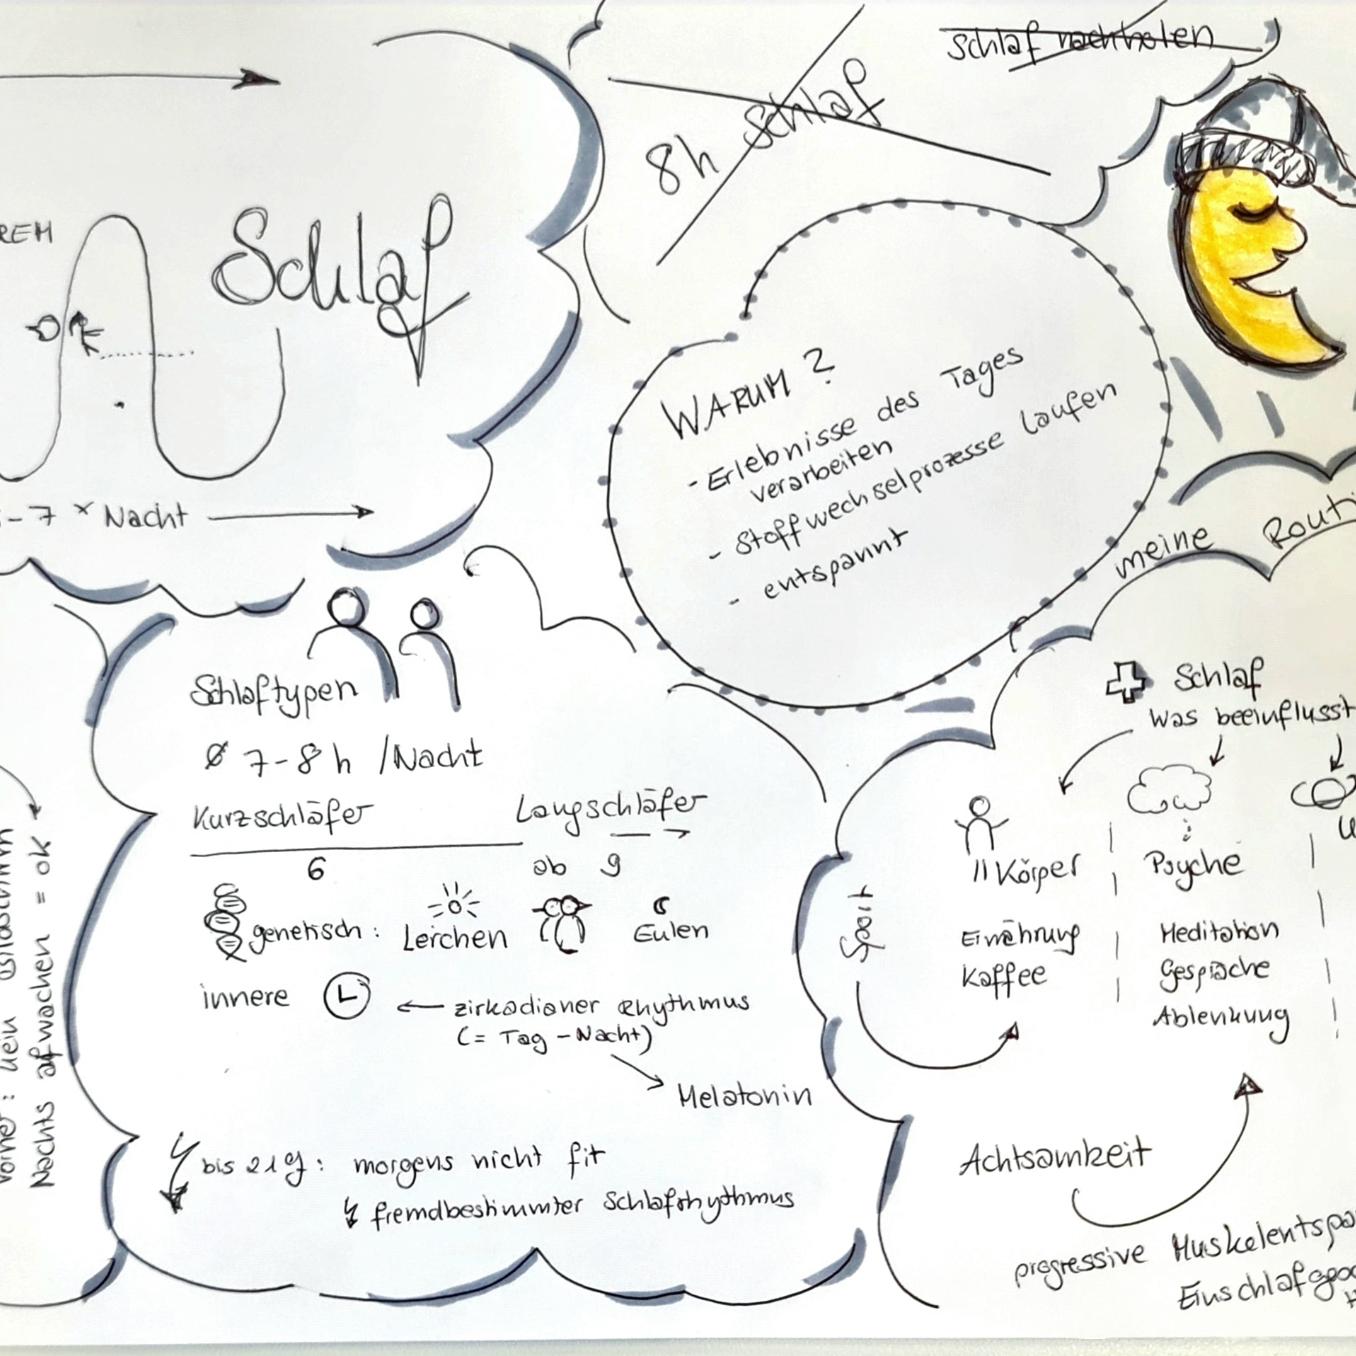 REM
Schlaf
-7 x Nacht
8h Schlaf
Schlaf nachholen
WARUM?
- Erlebnisse des Tages
verarbeiten
- Stoffwechselprozesse laufen
- entspannt
meine Routi
Schlaftypen
Ø 7-8h /Nacht
Kurzschläfer Langschläfer
6 ab 9
genetisch: Lerchen Eulen
innere
zirkadianer Rhythmus
(= Tag-Nacht)
Melatonin
bis 21 J: morgens nicht fit
fremdbestimmter Schlafrhythmus
Nachts afwachen = OK
Schlaf
Was beeinflusst
Körper Psyche
Ernährung Meditation
Kaffee Gespräche
Ablenkung
Achtsamkeit
progressive Muskelentspa